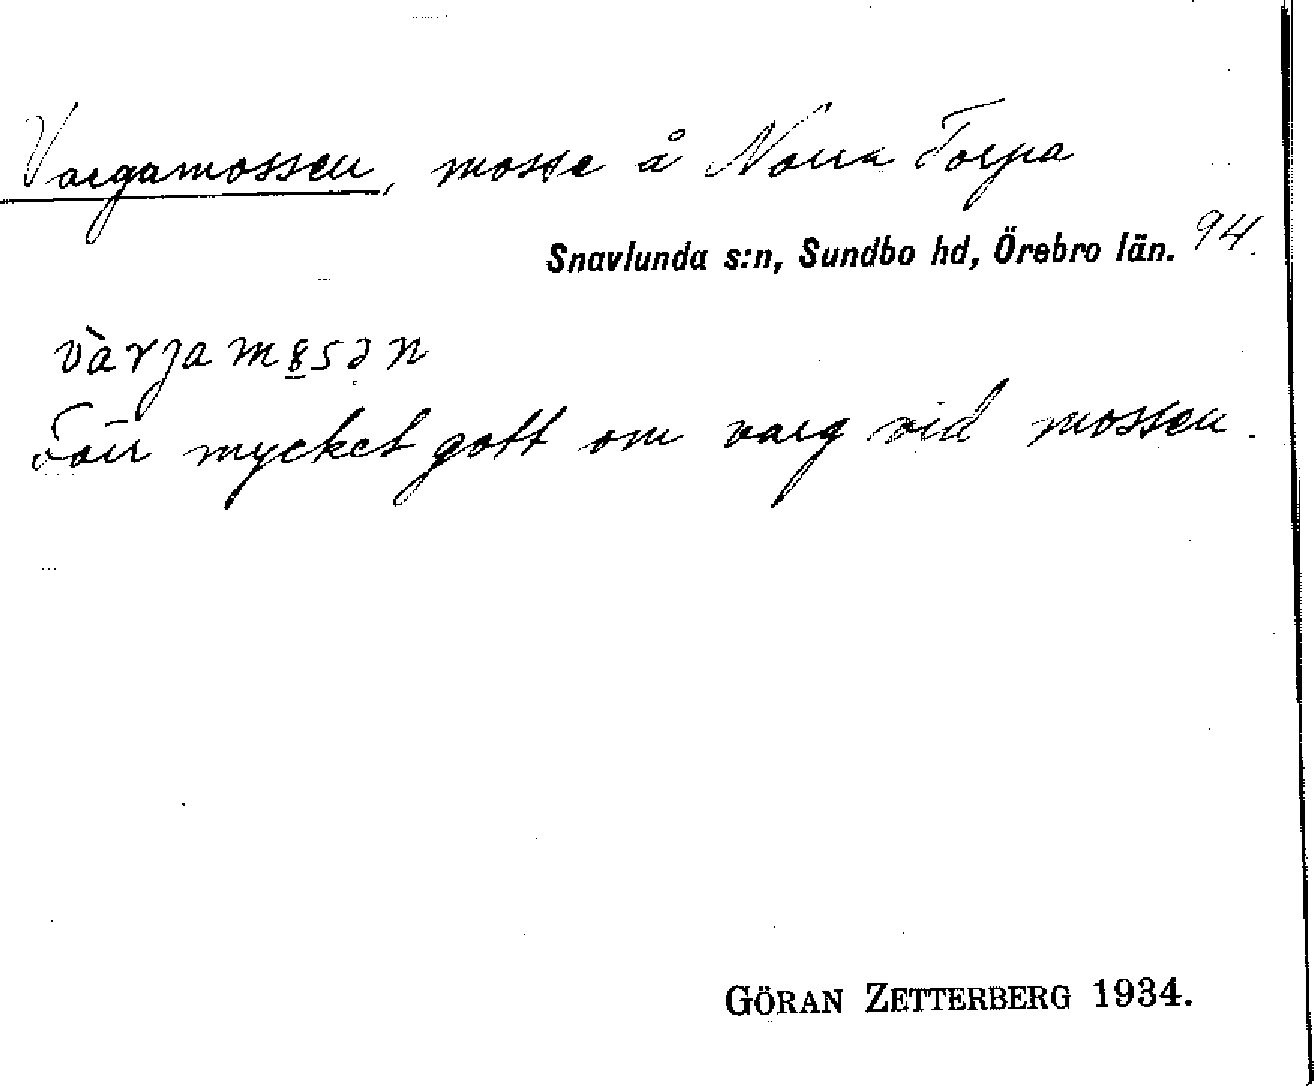 Vargamossen, mosse å Norra Torpa
Snavlunda s:n, Sundbo hd, Örebro län. 94.
Förr mycket gott om varg vid mossen.
GÖRAN ZETTERBERG 1934.